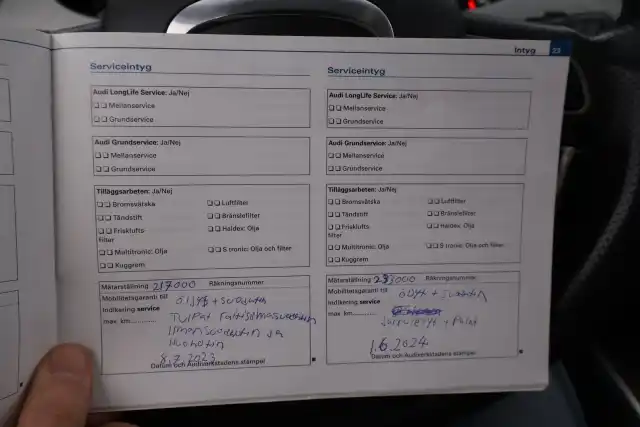 Intyg 23
Serviceintyg
Audi LongLife Service: Ja/Nej
Mellanservice
Grundservice
Audi Grundservice: Ja/Nej
Mellanservice
Grundservice
Tilläggsarbeten: Ja/Nej
Bromsvätska Luftfilter
Tändstift Bränslefilter
Frisklufts Haldex: Olja
filter
Multitronic: Olja S tronic: Olja och filter
Kuggrem
Mätarställning 217000 Räkningsnummer
Mobilitetsgaranti till öljyt + suodatin
Indikering service
max. km
Tulpat
ja
8.7.2023
Datum och Audiverkstadens stämpel
Serviceintyg
Audi LongLife Service: Ja/Nej
Mellanservice
Grundservice
Audi Grundservice: Ja/Nej
Mellanservice
Grundservice
Tilläggsarbeten: Ja/Nej
Bromsvätska Luftfilter
Tändstift Bränslefilter
Frisklufts Haldex: Olja
filter
Multitronic: Olja S tronic: Olja och filter
Kuggrem
Mätarställning Räkningsnummer
Mobilitetsgaranti till öljyt + suodatin
Indikering service
max. km
1.6.2024
Datum och Audiverkstadens stämpel